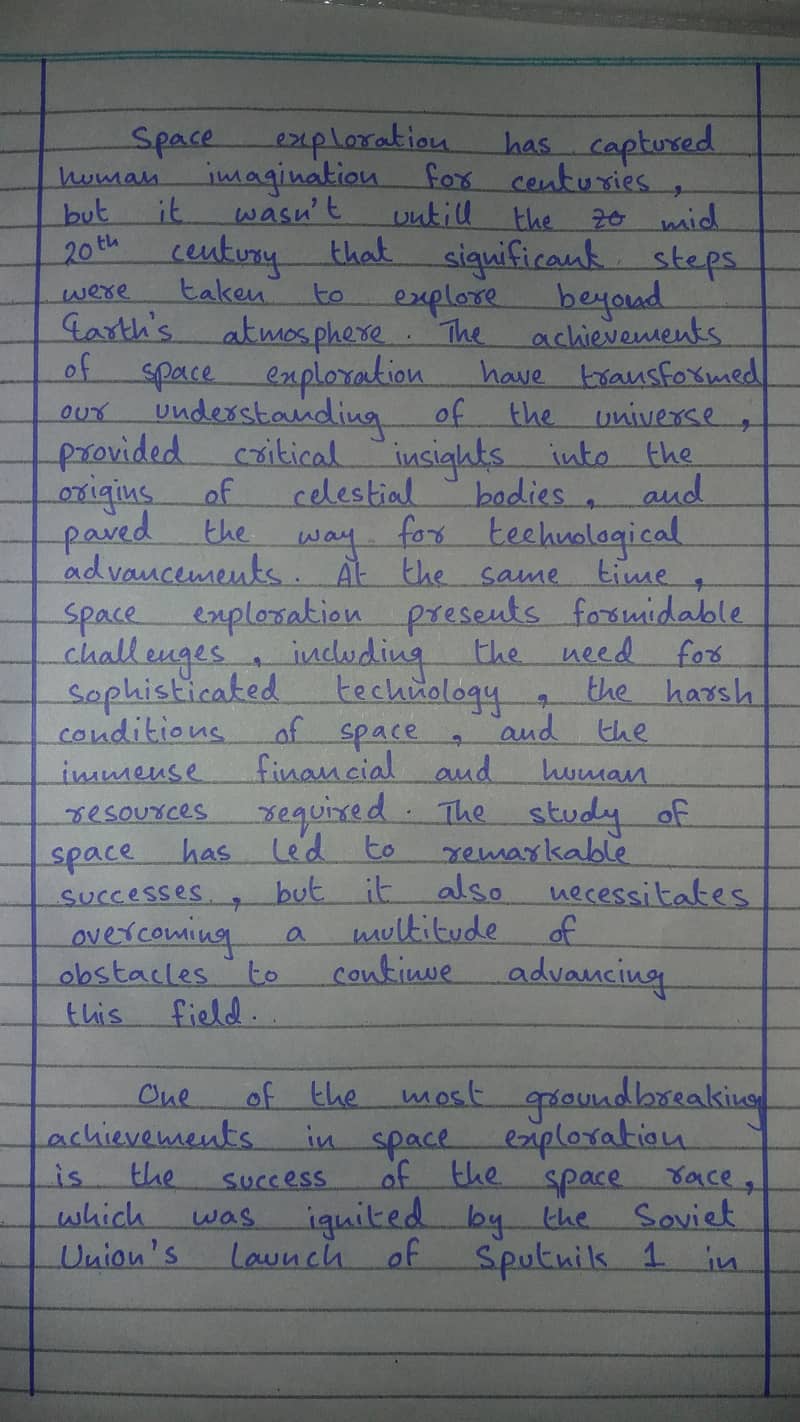 Space exploration has captured
human imagination for centuries,
but it wasn't untill the 20 mid
20th century that significant steps
were taken to explore beyond
Earth's atmosphere. The achievements
of space exploration have transformed
our understanding of the universe,
provided critical insights into the
origins of celestial bodies, and
paved the way for technological
advancements. At the same time,
space exploration presents formidable
challenges, including the need for
sophisticated technology, the harsh
conditions of space, and the
immense financial and human
resources required. The study of
space has led to remarkable
successes, but it also necessitates
overcoming a multitude of
obstacles to continue advancing
this field.
One of the most groundbreaking
achievements in space exploration
is the success of the space race,
which was ignited by the Soviet
Union's launch of Sputnik 1 in